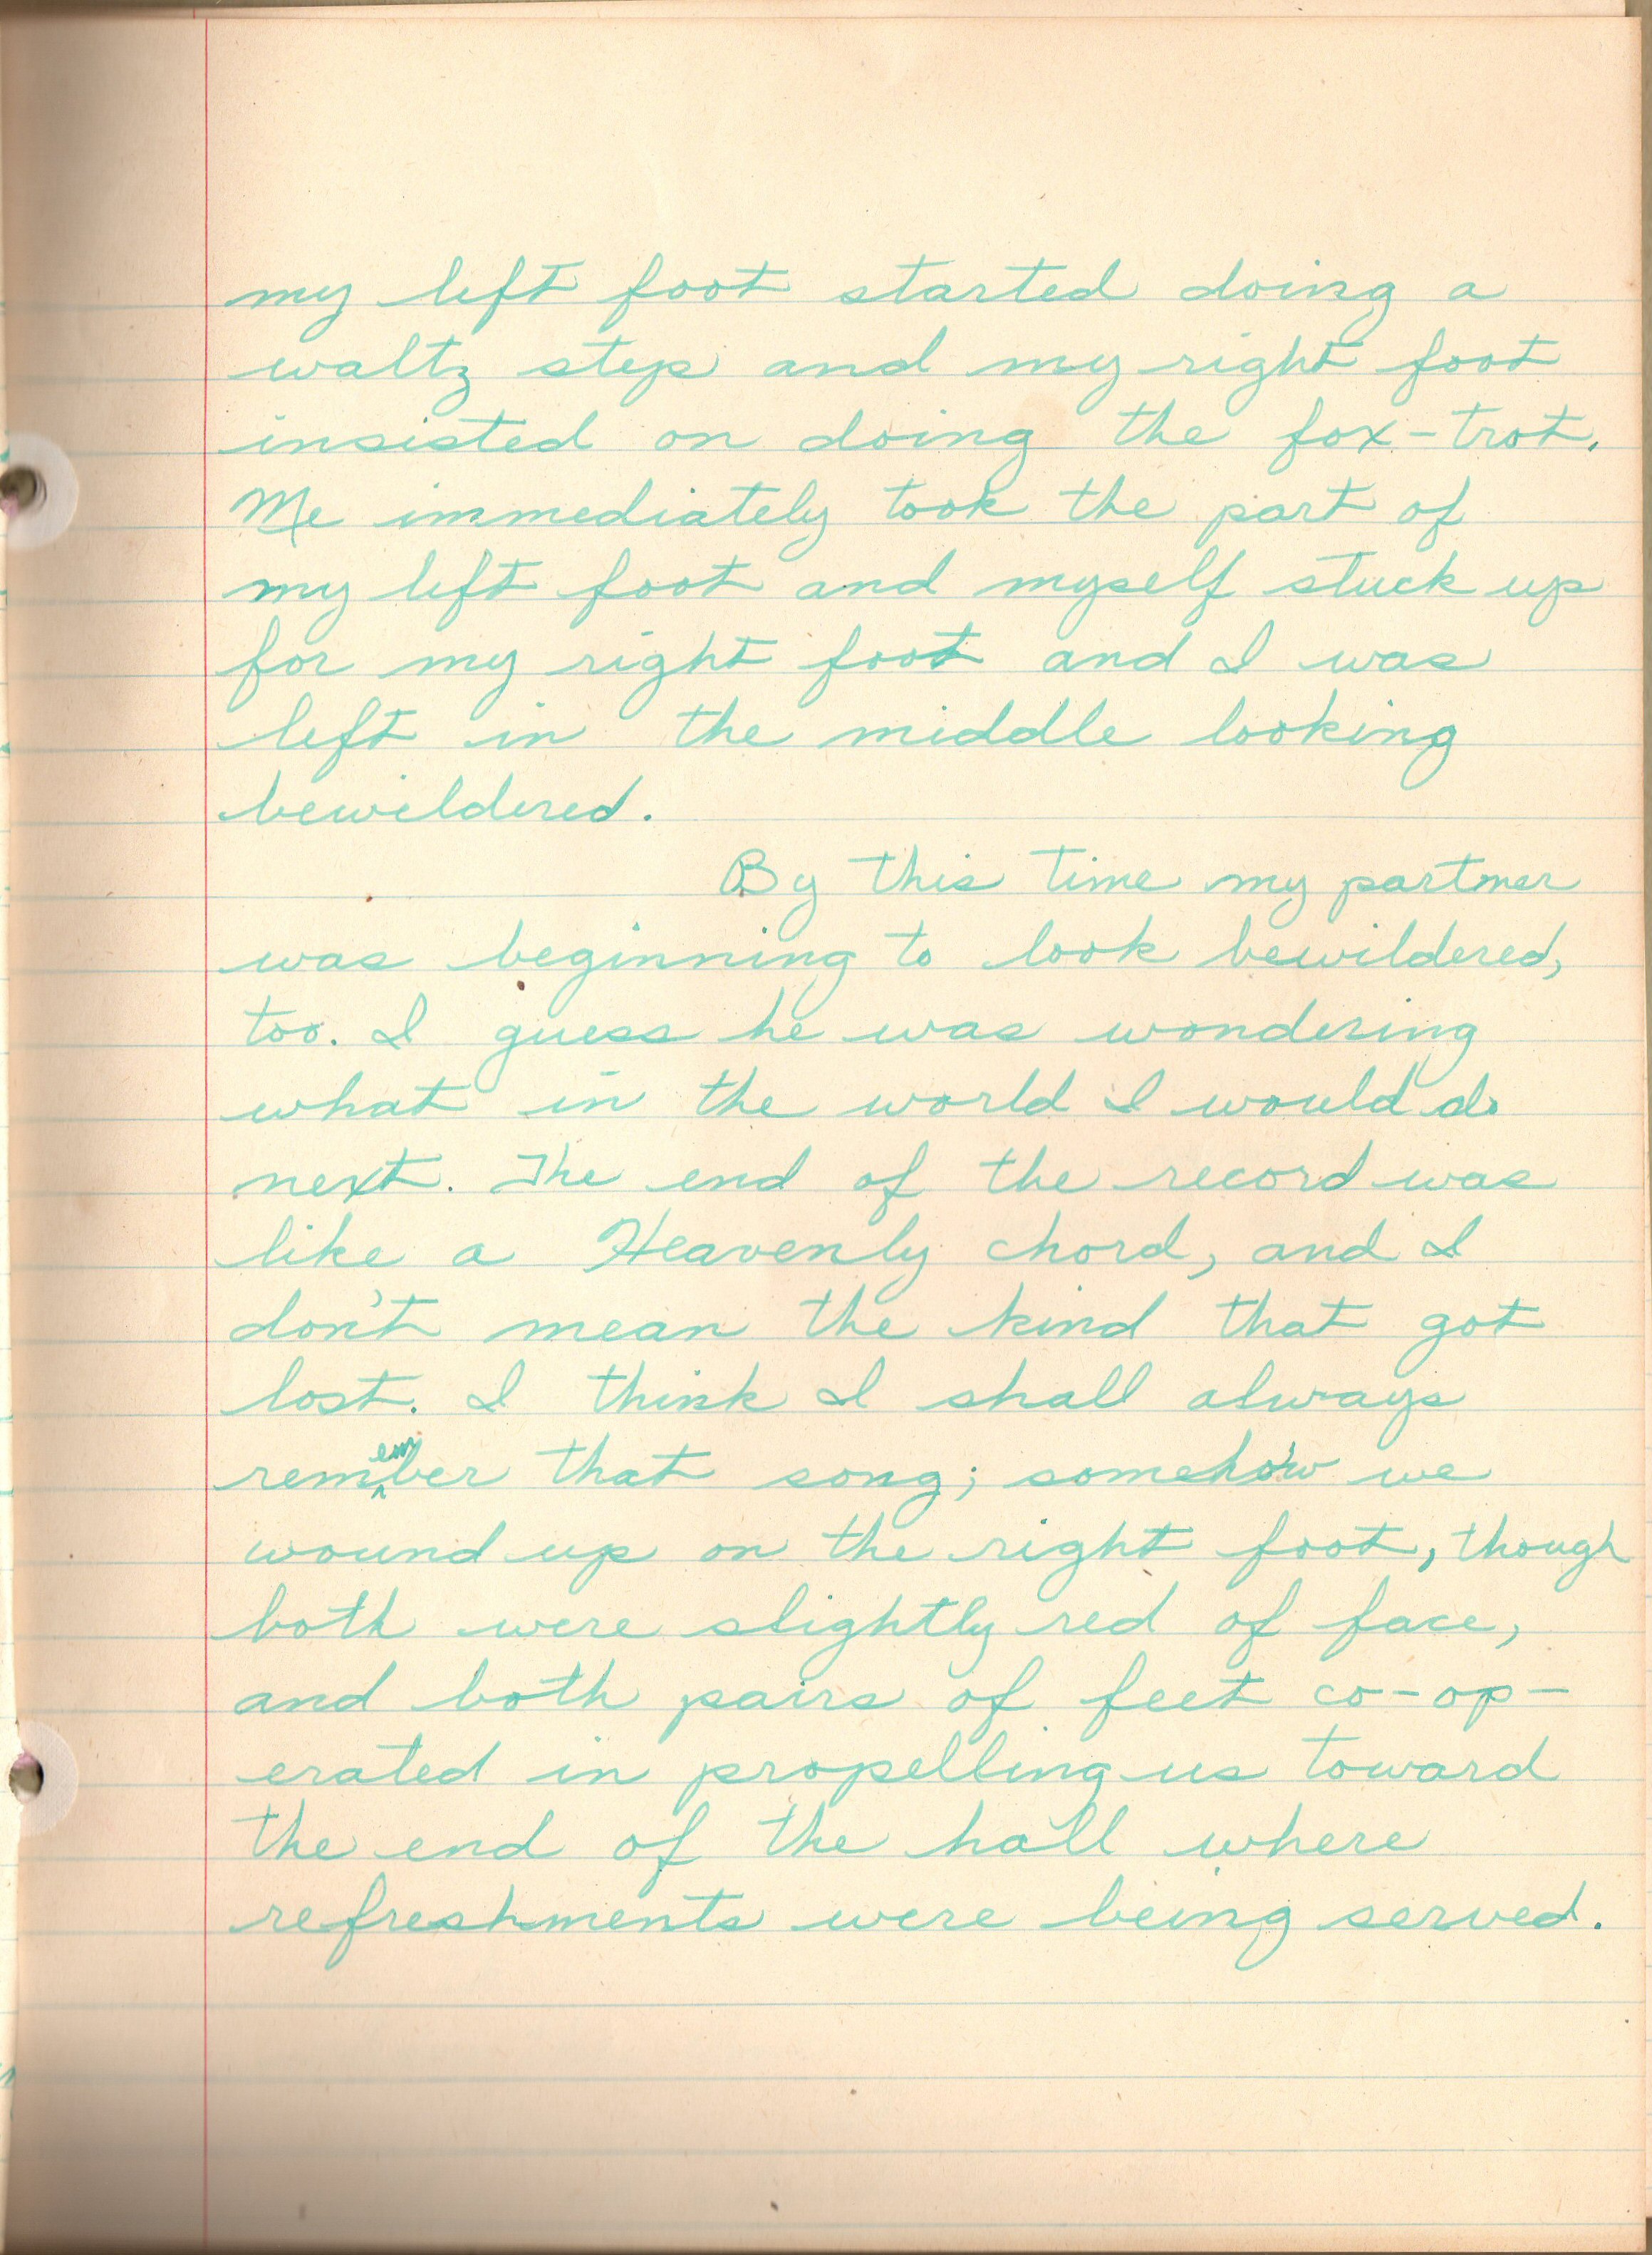 my left foot started doing a
waltz step and my right foot
insisted on doing the fox-trot.
Me immediately took the part of
my left foot and myself stuck up
for my right foot and I was
left in the middle looking
bewildered.
By this time my partner
was beginning to look bewildered,
too. I guess he was wondering
what in the world I would do
next. The end of the record was
like a Heavenly chord, and I
don't mean the kind that got
lost. I think I shall always
remember that song; somehow we
wound up on the right foot, though
both were slightly red of face,
and both pairs of feet co-op-
erated in propelling us toward
the end of the hall where
refreshments were being served.